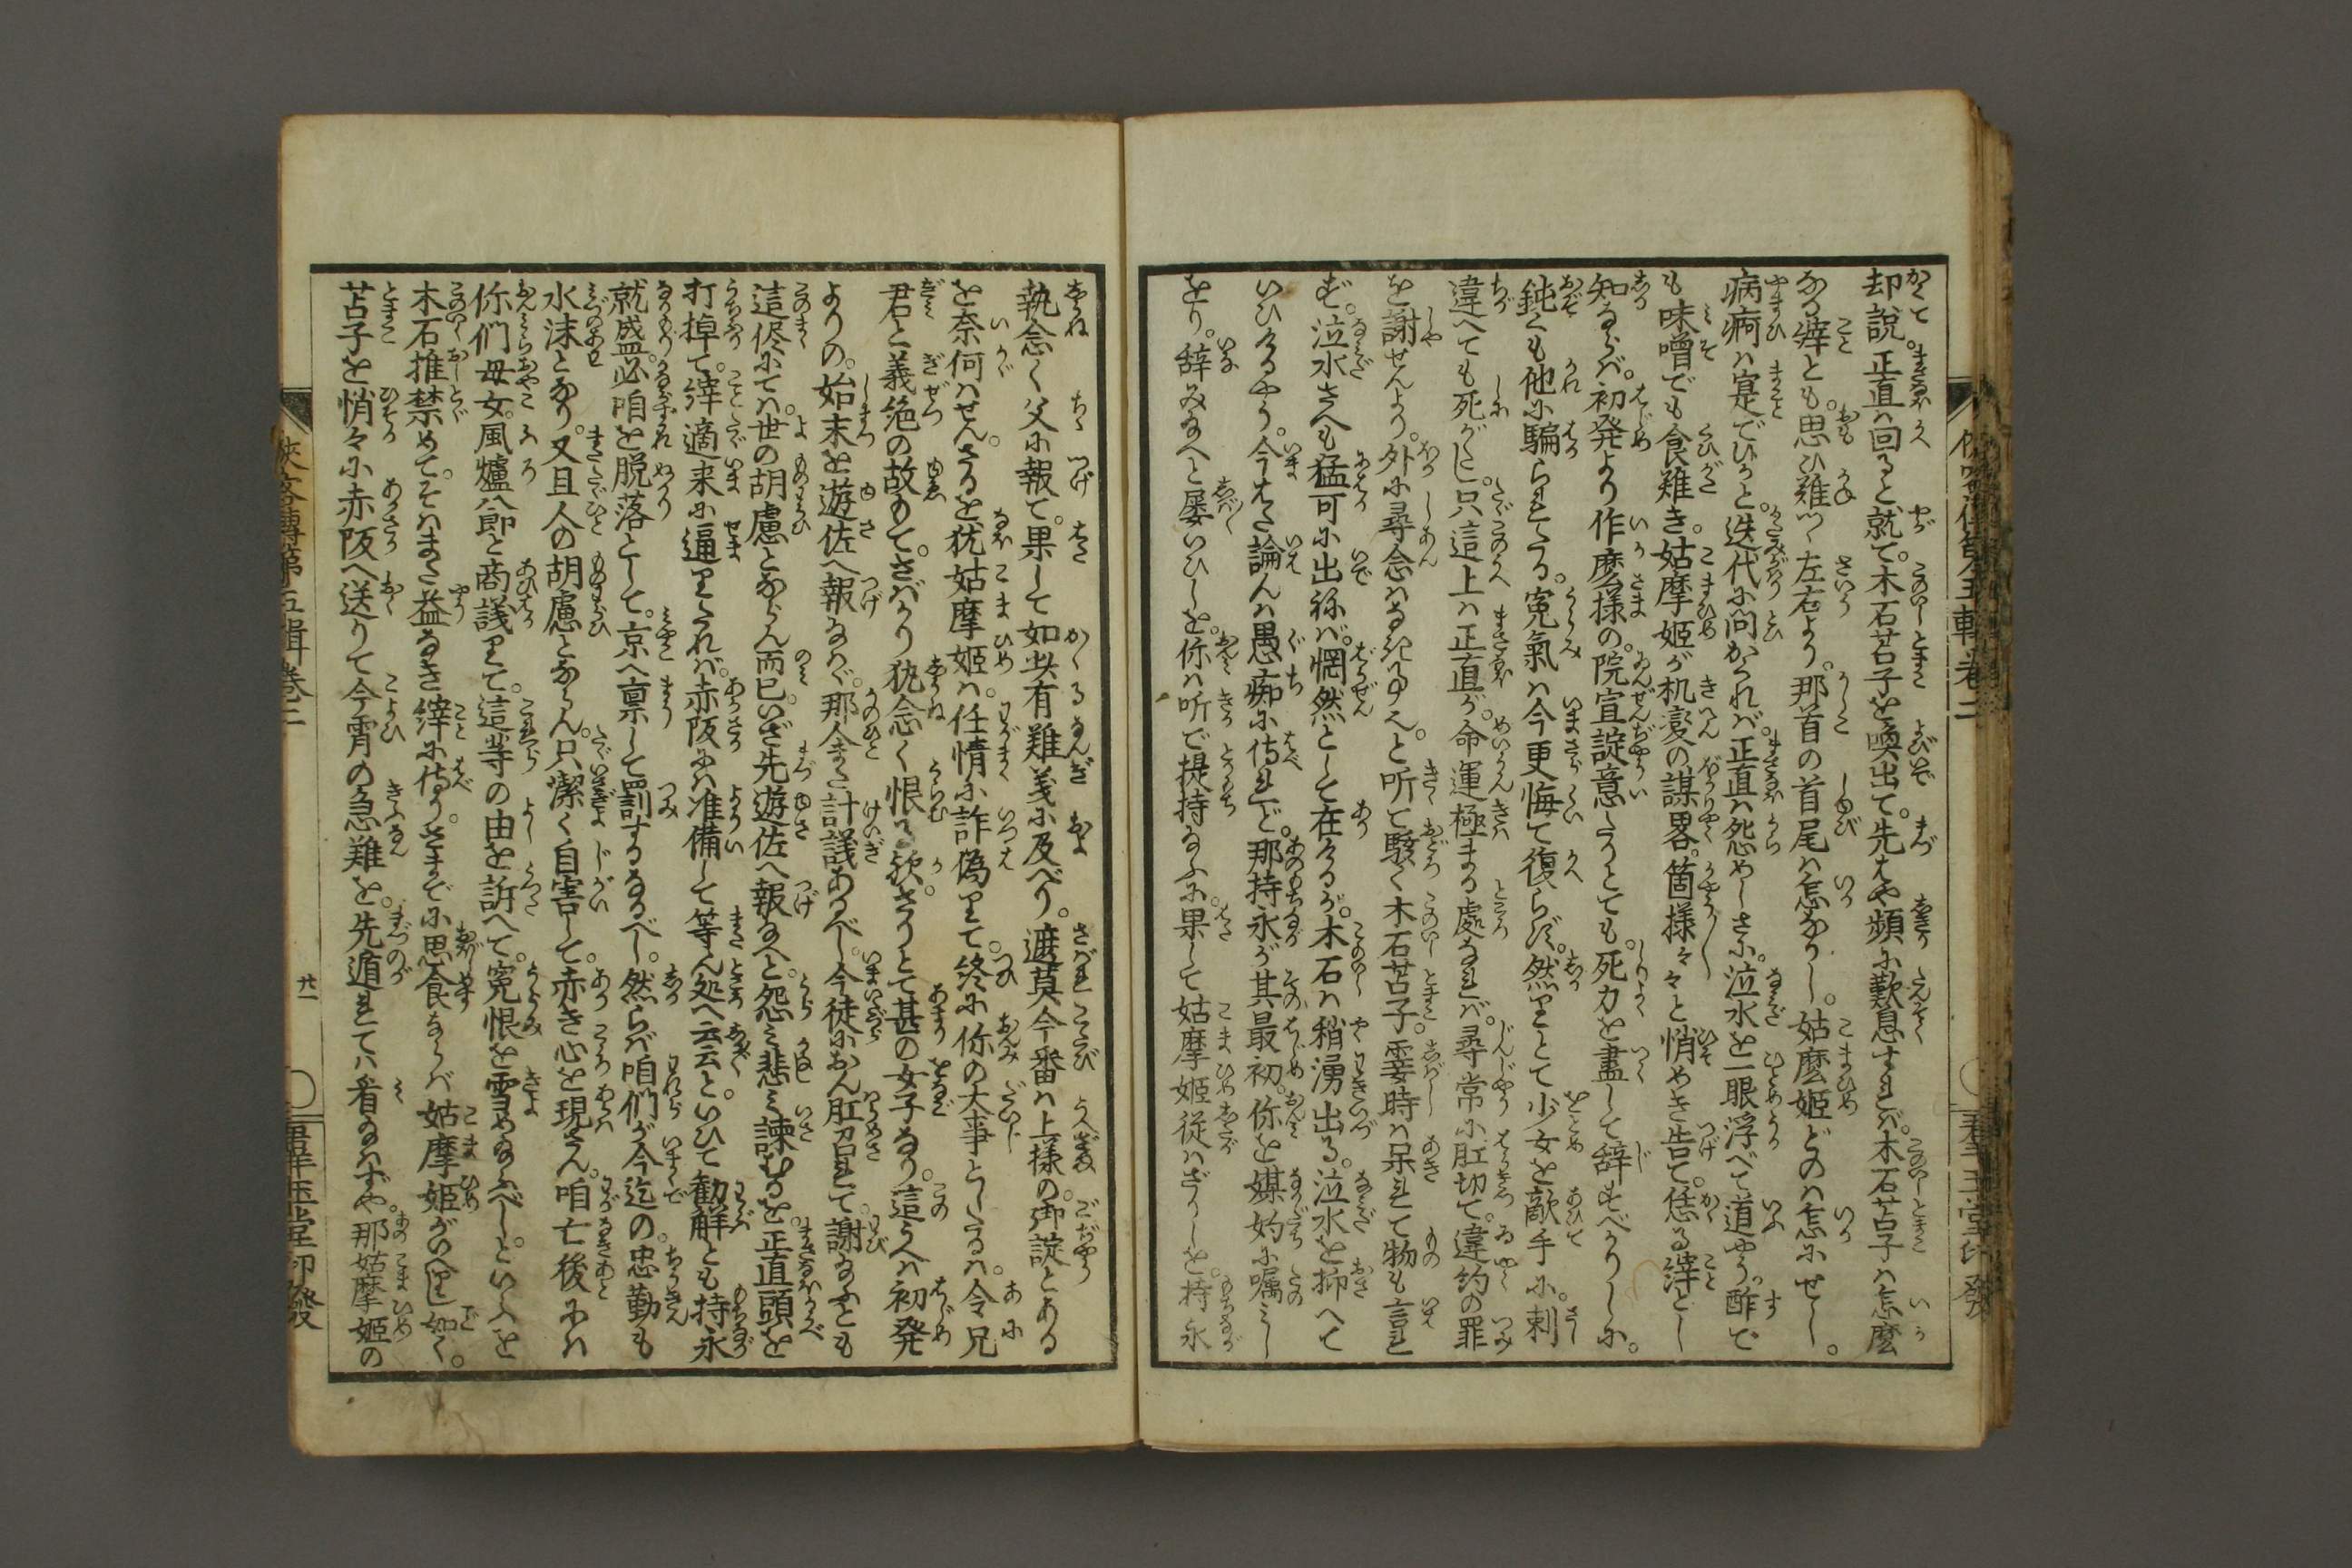 却説。正直は回ると就て。木石苫子を喚出て。先はや頻に歎息すれバ。木石苫子ハ怎麼
なる縡とも。思ひ難つゝ左右より。那首の首尾ハ怎なりし。姑麼姫どのハ怎にせし。
病痾ハ寔でひかと。迭代に問かくれバ。正直ハ怨めしさに。泣水を一眼浮べて道やう。酢で
も味噌でも食難き。姑摩姫が机変の謀畧。箇様々々と悄めき告て。恁る縡とし
知るならバ。初発より作麼様の。院宣諚意たりとても。死力を盡して辞すべかりしに。
鈍くも他に騙られたる。寃氣ハ今更悔て復らず。然りとて少女を敵手に。刺
違へても死がたし。只這上ハ正直が。命運極まる處なれバ。尋常に肛切て。違約の罪
を謝せんより。外に尋念ハなきぞかし。と听て駭く木石苫子。霎時ハ呆れて物も言れ
ず。泣水さへも猛可に出ねバ。惘然として在けるが。木石ハ稍湧出る。泣水を抑へて
いひけるやう。今はた論んハ愚痴に侍れど。那持永が其最初。你を媒妁に嘱みし
をり。辞みねへと屡いひしを。你ハ听で提持なふに。果して姑摩姫従ハざりしを。持永
執念く父に報て。果して如此有難義に及べり。遮莫今番ハ上様の。御諚とある
を奈何ハせん。さるを犹姑摩姫ハ。任情に詐偽りて。終に你の大事としたるハ。令兄
君と義絶の故もて。さばかり執念く恨る欤。さりとて甚の女子なり。這うへハ初発
よりの。始末を遊佐へ報なハゞ。那人また計議あるべし。今徒におん肛召れて。謝なふとも
這侭にてハ。世の胡慮とならん而已。いざ先遊佐へ報ねへと。怨ミ悲ミ諫むるを。正直頭を
打掉て。縡適来に逼りたれバ。赤阪にハ准備して等ん処へ云云と。いひて勧解とも持永
就盛。必咱を脱落として。京へ禀して罰するなるべし。然らバ咱們が今迄の。忠勤も
水沫となり。又且人の胡慮とならん。只潔く自害して。赤き心を現さん。咱亡後にハ
你們母女。風爐八郎と商議りて。這等の由を訴へて。寃恨を雪めなふべし。といふを
木石推禁めて。そハまた益なき縡に侍り。さまでに思食ならバ姑摩姫がいへりし如く。
苫子を悄々に赤阪へ送りて今宵の急難を。先遁れてハ看なハずや。那姑摩姫の
侠客傳第五輯巻二
廿一
群玉堂印發